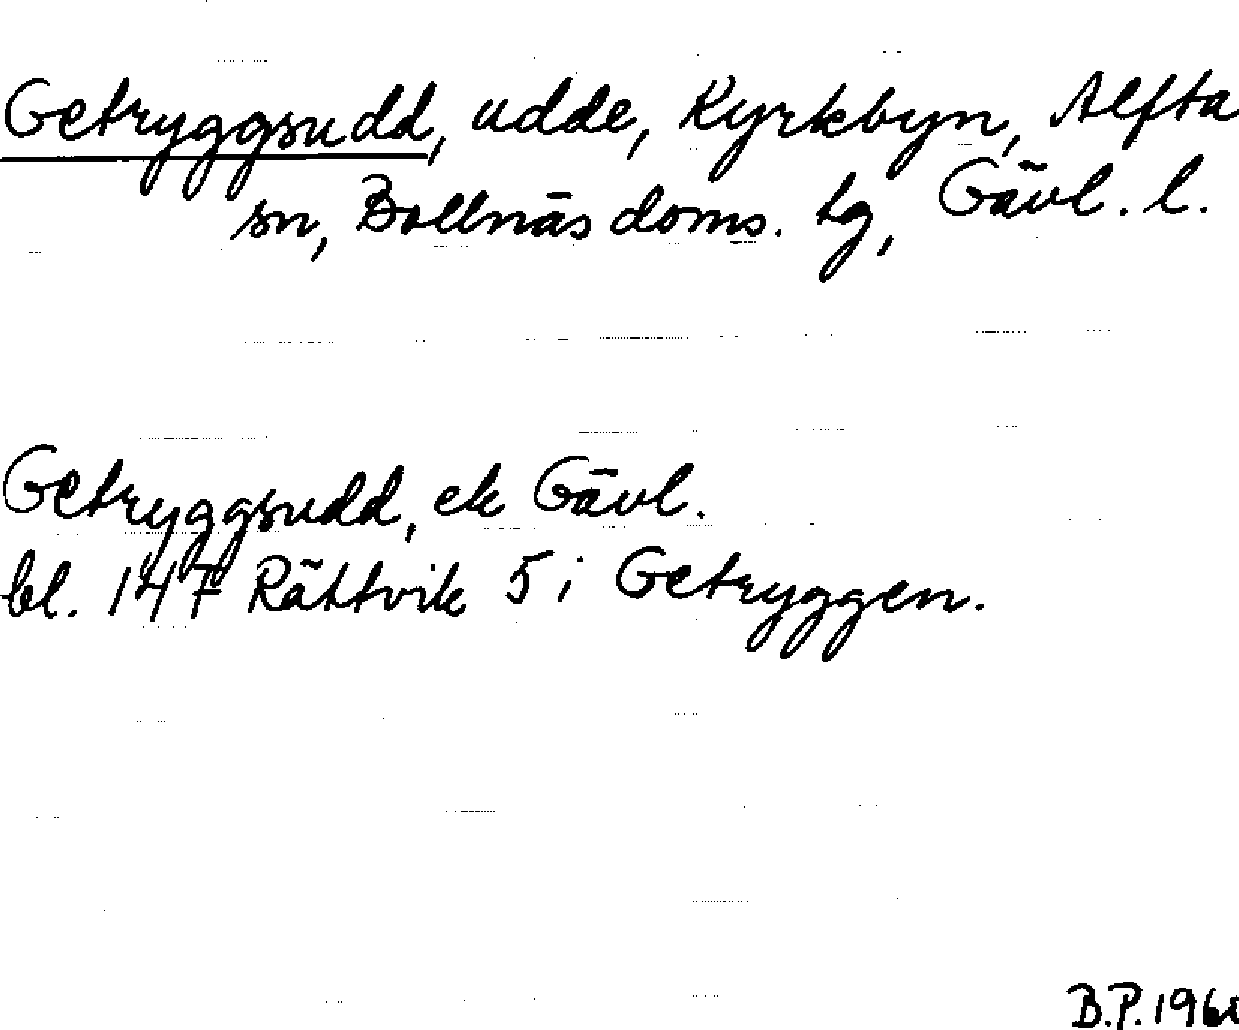 Getryggsudd, udde, Kyrkbyn, Alfta
sn, Bollnäs doms. tg, Gävl. l.
Getryggsudd, ek Gävl.
bl. 147 Rättvik 5 i Getryggen.
B.P.